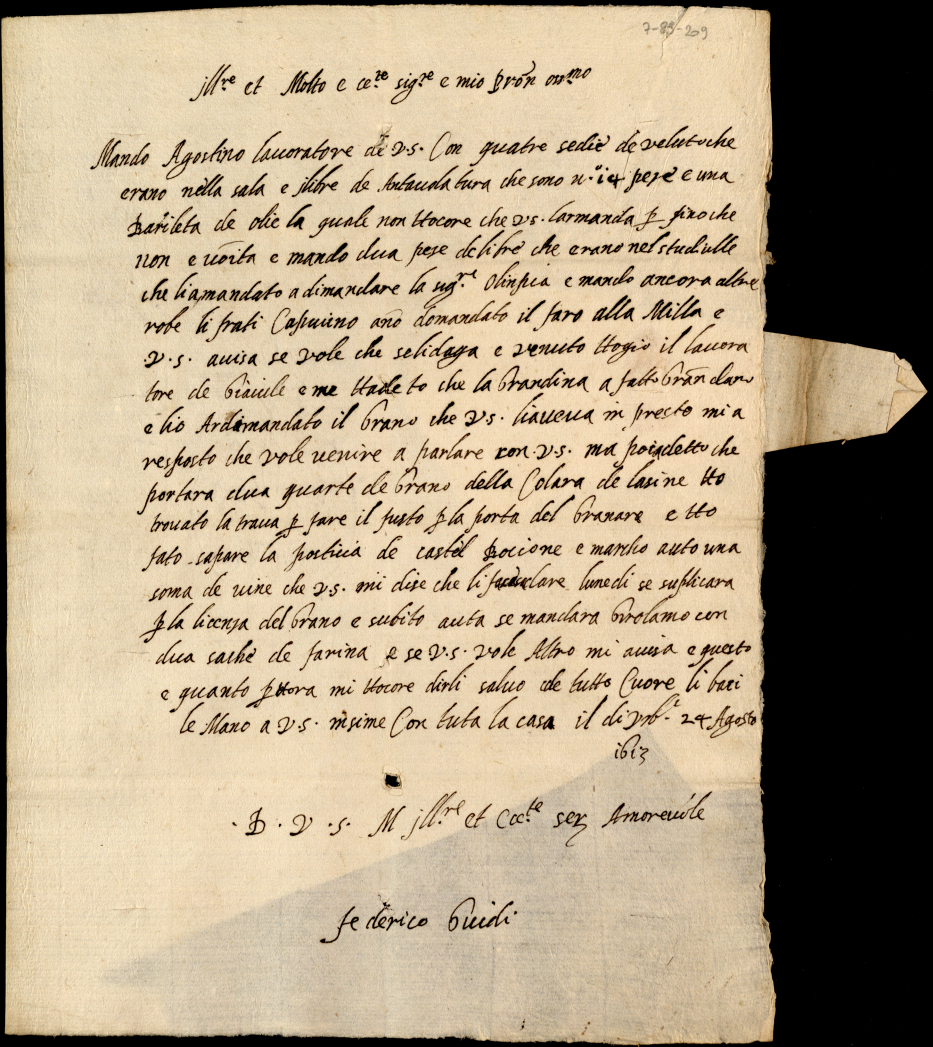 7-83-209
jll.re et Molto e ce.te sig.re e mio Prõn oss.mo
Mando Agostino lauoratore de v.s. Con quatre sedie de veluto che
erano nella sala e ilibre de Antauolatura che sono n.o 14 peze e una
Barileta de olie la quale non ttocore che v.s. larmanda p fino che
non e uoita e mando dua peze de libre che erano nel studulle
che lia mandato a dimandare la sig.re Olinpia e mando ancora altre
robe li frati Capuuino ano domandato il faro alla Milla e
v.s. auisa se vole che selidaga e venuto ttogio il lauora
tore de e me che la Grandina a fatto gran dano
e lio Ardimandato il Grano che v.s. liaueua in presto mi a
resposto che vole uenire a parlare con v.s. ma poi a detto che
portara dua quarte de Grano della Colara de lasine tto
trouato la traua p fare il fusto p la porta del Granare e tto
fato sapare la posticia de castel Bocione e marcho auto una
soma de uine che v.s. mi dise che li lunedi se suplicara
p la licenza del Grano e subito auta se mandara Girolamo con
dua sache de farina e se v.s. vole Altro mi auisa e questo
e quanto p ttora mi ttocore dirli saluo de tutto Cuore li baci
le Mano a v.s. insime Con tuta la casa il di 24 Agosto
1613
. D . V . S . M jll.re et Ecc.te ser Amoreuole
federico Guidi